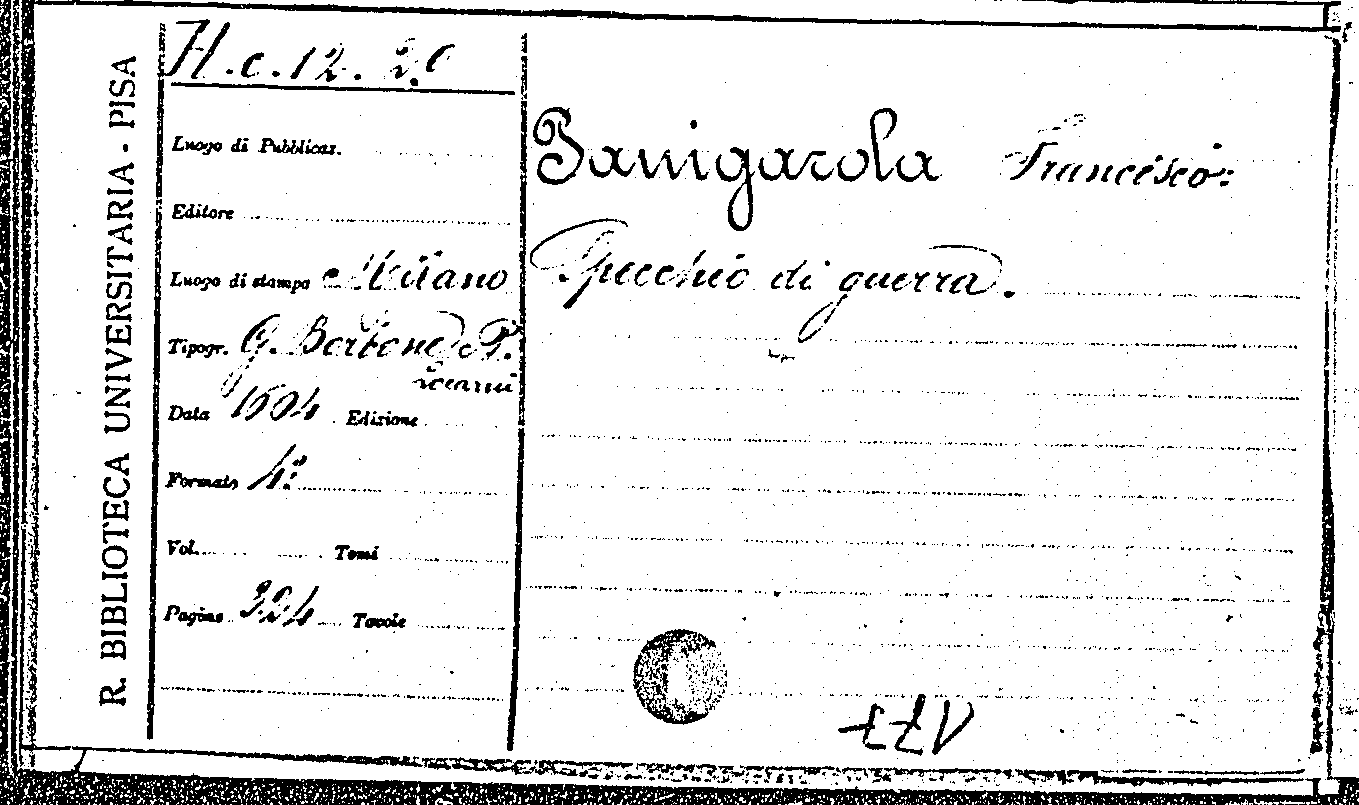 R. BIBLIOTECA UNIVERSITARIA - PISA
H.c.12. 20
Luogo di Pubblicaz.
Editore
Luogo di stampa Milano
Tipogr. G. Bordone P.
Locarni
Data 1604 Edizione
Formato 4º
Vol. Tomi
Pagine 324 Tavole
Panigarola Francesco:
Specchio di guerra.
177